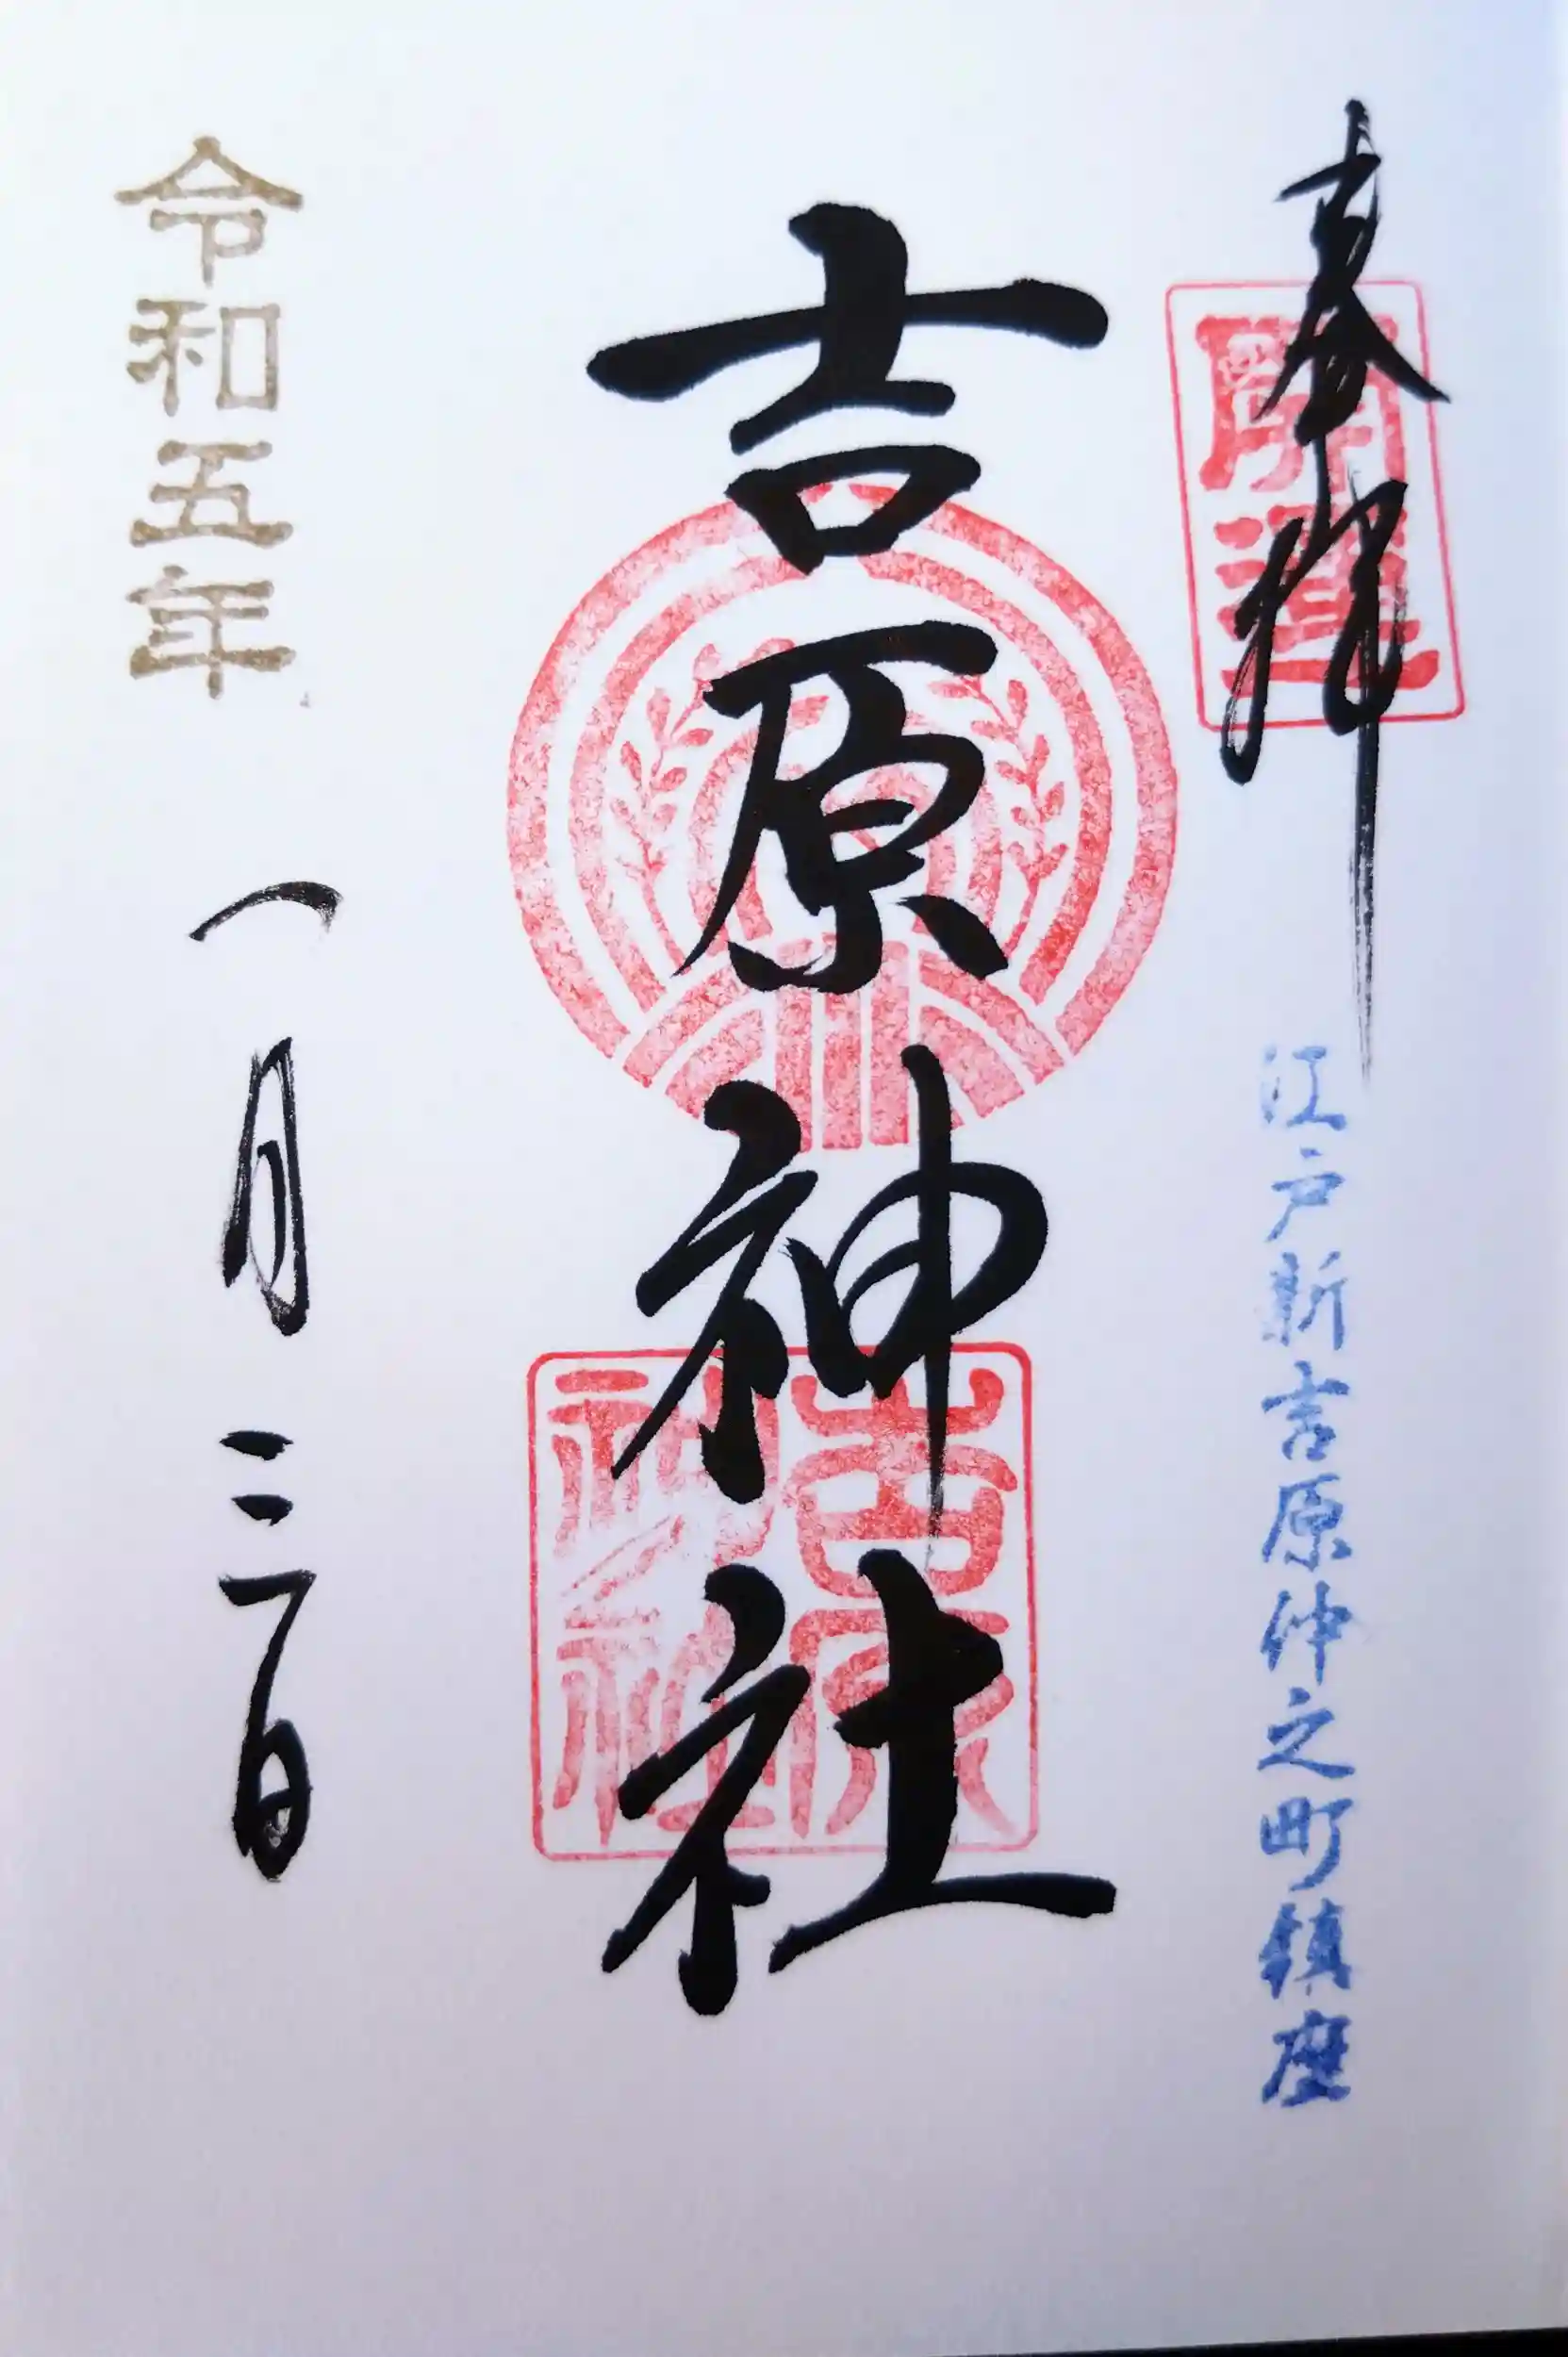 奉拝
開運
江戸新吉原仲之町鎮座
吉原神社
吉原
神社
令和五年
一月三日